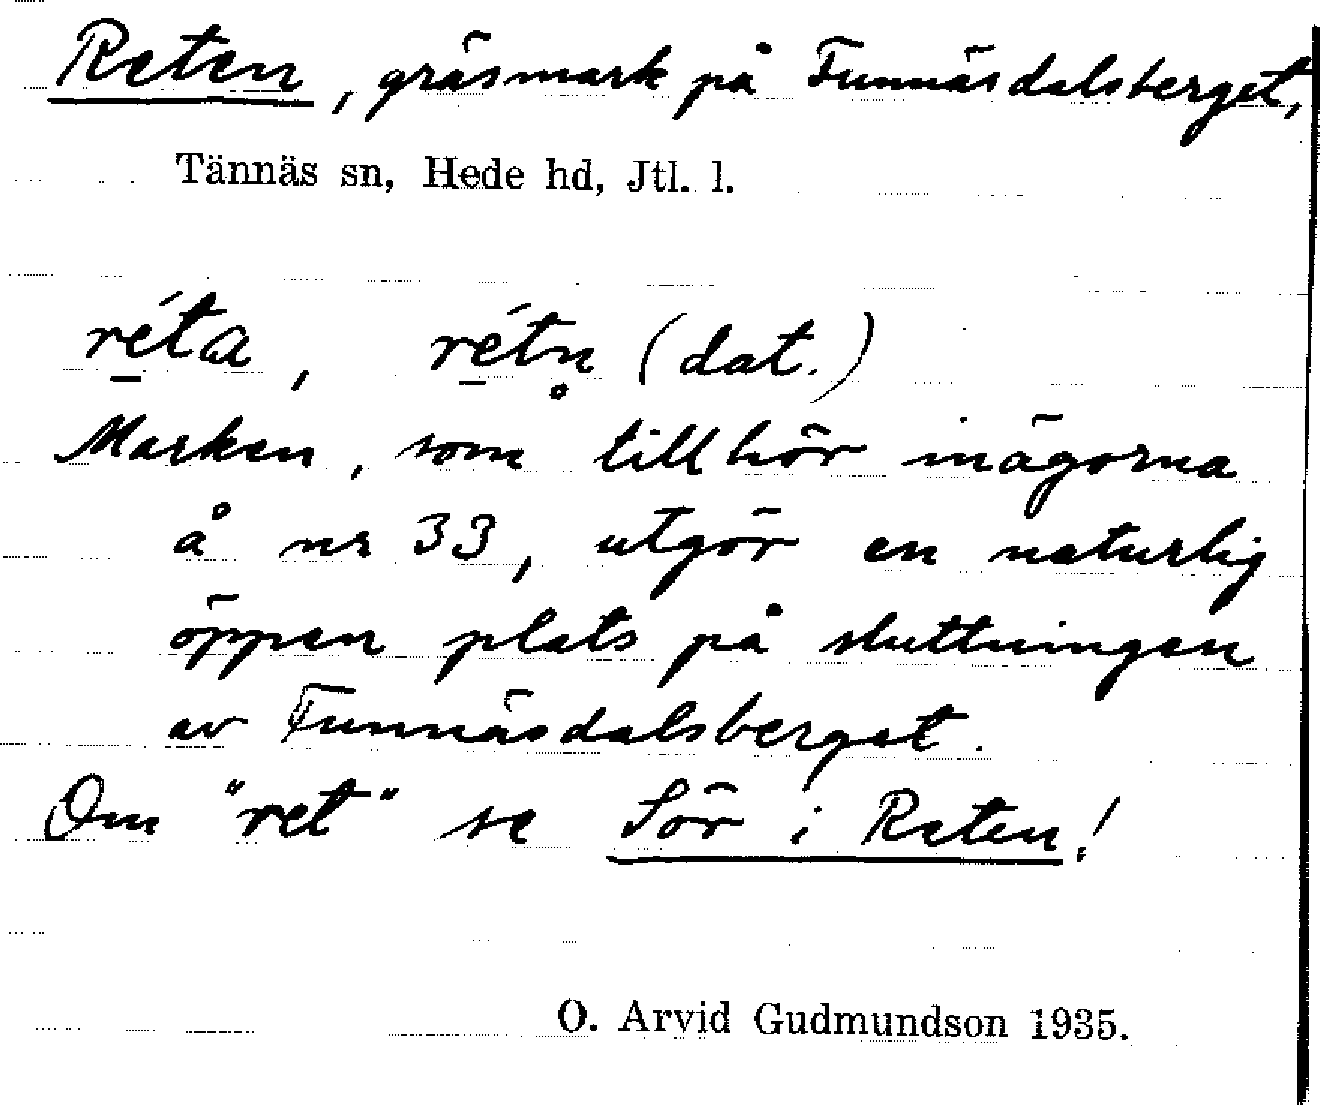 Reten, gräsmark på Funnäsdalsberget,
Tännäs sn, Hede hd, Jtl. l.
ré̱ta, ré̱tn̥ (dat.)
Marken, som tillhör inägorna
å nr 33, utgör en naturlig
öppen plats på sluttningen
av Funnäsdalsberget.
Om "ret" se Sör i Reten!
O. Arvid Gudmundson 1935.